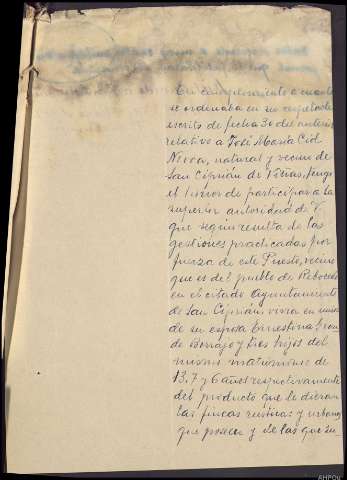 En cumplimiento a cuanto
se ordenaba en su respetable
escrito de fecha 30 del anterior
relativo a José María Cid
Novoa, natural y vecino de
San Ciprián de Viñas, tengo
el honor de participar a la
superior autoridad de V.
que según resulta de las
gestiones practicadas por
fuerza de este Puesto, vecino
que es del pueblo de Reboredo
en el citado Ayuntamiento
de San Ciprián, vivía en unión
de su esposa Ernestina
de Borrajo y tres hijos del
mismo matrimonio de
13, 7 y 6 años respectivamente
del producto que le dieran
las fincas rústicas y urbanas
que poseen y de las que su-
AHPOu